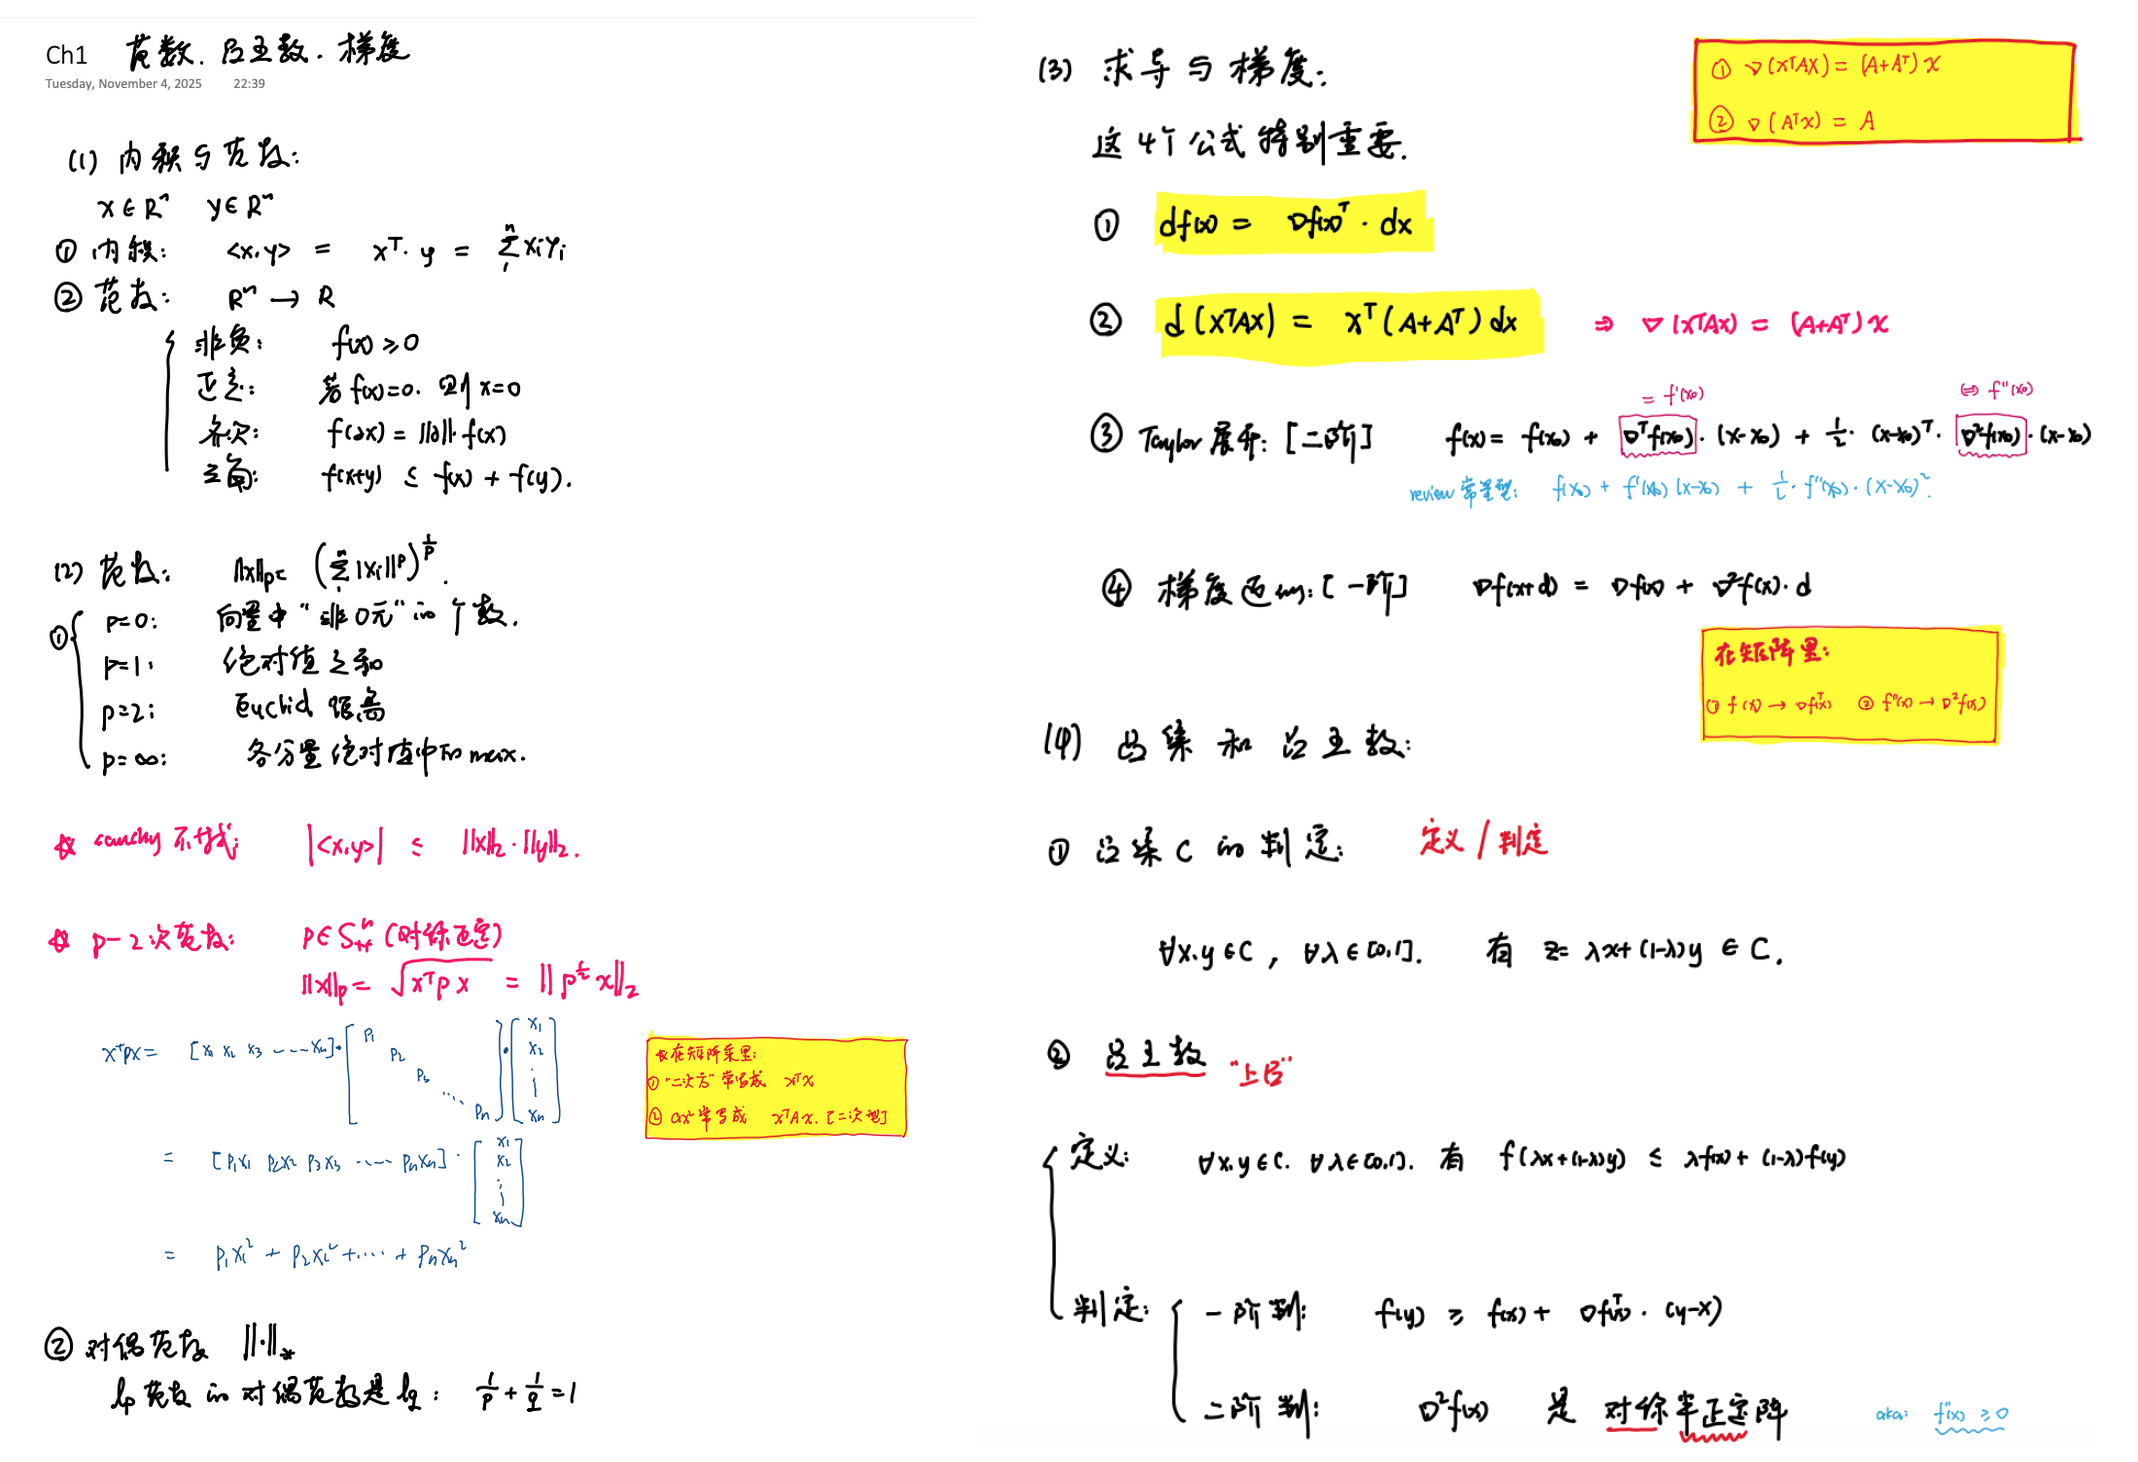 Ch1 范数. 凸函数. 梯度
Tuesday, November 4, 2025 22:39
(1) 内积与范数:
x∈Rⁿ y∈Rⁿ
① 内积: <x.y> = xᵀ·y = Σ₁ⁿ xᵢyᵢ
② 范数: Rⁿ → R
非负: f(x) ≥ 0
正定: 若 f(x)=0. 则 x=0
齐次: f(ax) = ||a||·f(x)
三角: f(x+y) ≤ f(x) + f(y).
(2) 范数: ||x||p = (Σ₁ⁿ |xᵢ||ᵖ)^(1/p).
① p=0: 向量中"非0元"的个数.
p=1: 绝对值之和
p=2: Euclid 距离
p=∞: 各分量绝对值中的max.
☆ cauchy 不等式: |<x.y>| ≤ ||x||₂·||y||₂.
☆ p-2次范数: P∈Sⁿ₊₊ (对称正定)
||x||p = √(xᵀPx) = ||P^(1/2) x||₂
xᵀPx = [x₁ x₂ x₃ ---- xₙ]·[P₁ P₂ P₃ ···· Pₙ]·[x₁ x₂ ⋮ xₙ]
= [P₁x₁ P₂x₂ P₃x₃ ---- Pₙxₙ]·[x₁ x₂ ⋮ xₙ]
= P₁x₁² + P₂x₂² + ···· + Pₙxₙ²
☆在矩阵乘里:
① "二次方"常写成 xᵀx
② ax²常写成 xᵀAx. [二次型]
② 对偶范数 ||·||*
lp范数的对偶范数是lq: 1/p + 1/q = 1
(3) 求导与梯度:
① ∇(xᵀAx) = (A+Aᵀ)x
② ∇(Aᵀx) = A
这4个公式特别重要.
① df(x) = ∇f(x)ᵀ·dx
② d(xᵀAx) = xᵀ(A+Aᵀ)dx ⇒ ∇(xᵀAx) = (A+Aᵀ)x
= f'(x₀) ⇔ f''(x₀)
③ Taylor 展开: [二阶] f(x) = f(x₀) + ∇ᵀf(x₀)·(x-x₀) + 1/2·(x-x₀)ᵀ·∇²f(x₀)·(x-x₀)
review 常量型: f(x₀) + f'(x₀)(x-x₀) + 1/2·f''(x₀)·(x-x₀)².
④ 梯度近似: [一阶] ∇f(x+d) = ∇f(x) + ∇²f(x)·d
在矩阵里:
① f'(x) → ∇f(x)ᵀ ② f''(x) → ∇²f(x)
(4) 凸集和凸函数:
① 凸集C的判定: 定义/判定
∀x.y∈C, ∀λ∈[0,1]. 有 z=λx+(1-λ)y ∈ C.
② 凸函数 "上凹"
定义: ∀x.y∈C. ∀λ∈[0,1]. 有 f(λx+(1-λ)y) ≤ λf(x) + (1-λ)f(y)
判定: 一阶判: f(y) ≥ f(x) + ∇f(x)ᵀ·(y-x)
二阶判: ∇²f(x) 是 对称半正定阵 aka: f''(x) ≥ 0